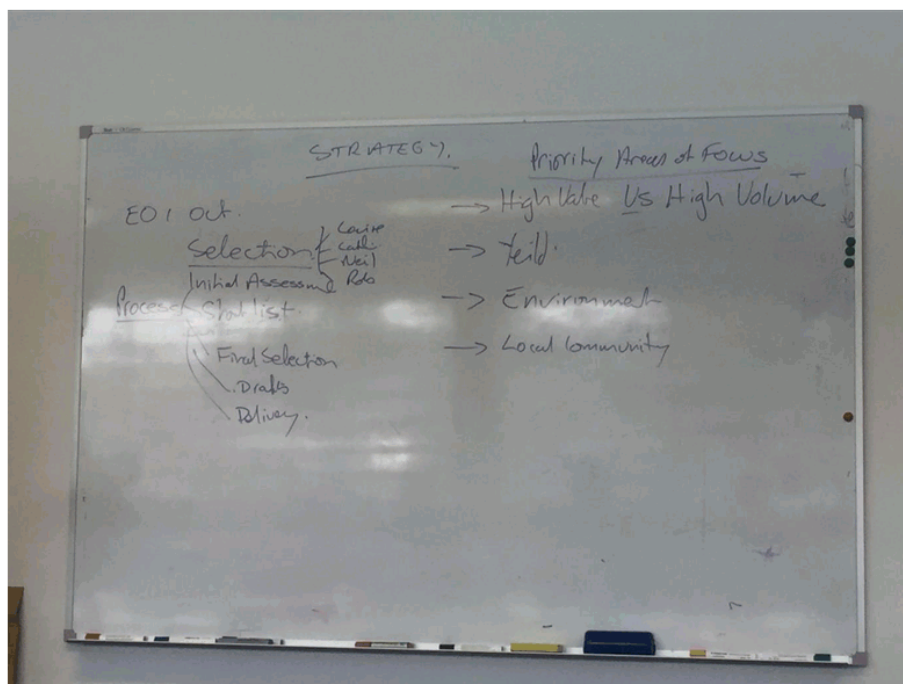 STRATEGY.
EOI Out.
Selection
Louise
Neil
Rob
Process
Initial Assessment
Shortlist.
Final Selection
Drafts
Delivery.
Priority Areas of Focus
→ High Value Vs High Volume
→ Yeild.
→ Environment
→ Local Community